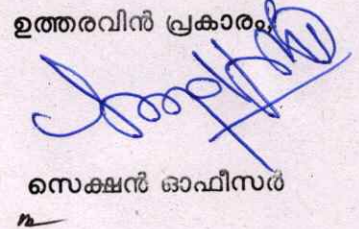 ഉത്തരവിൻ പ്രകാരം,
സെക്ഷൻ ഓഫീസർ